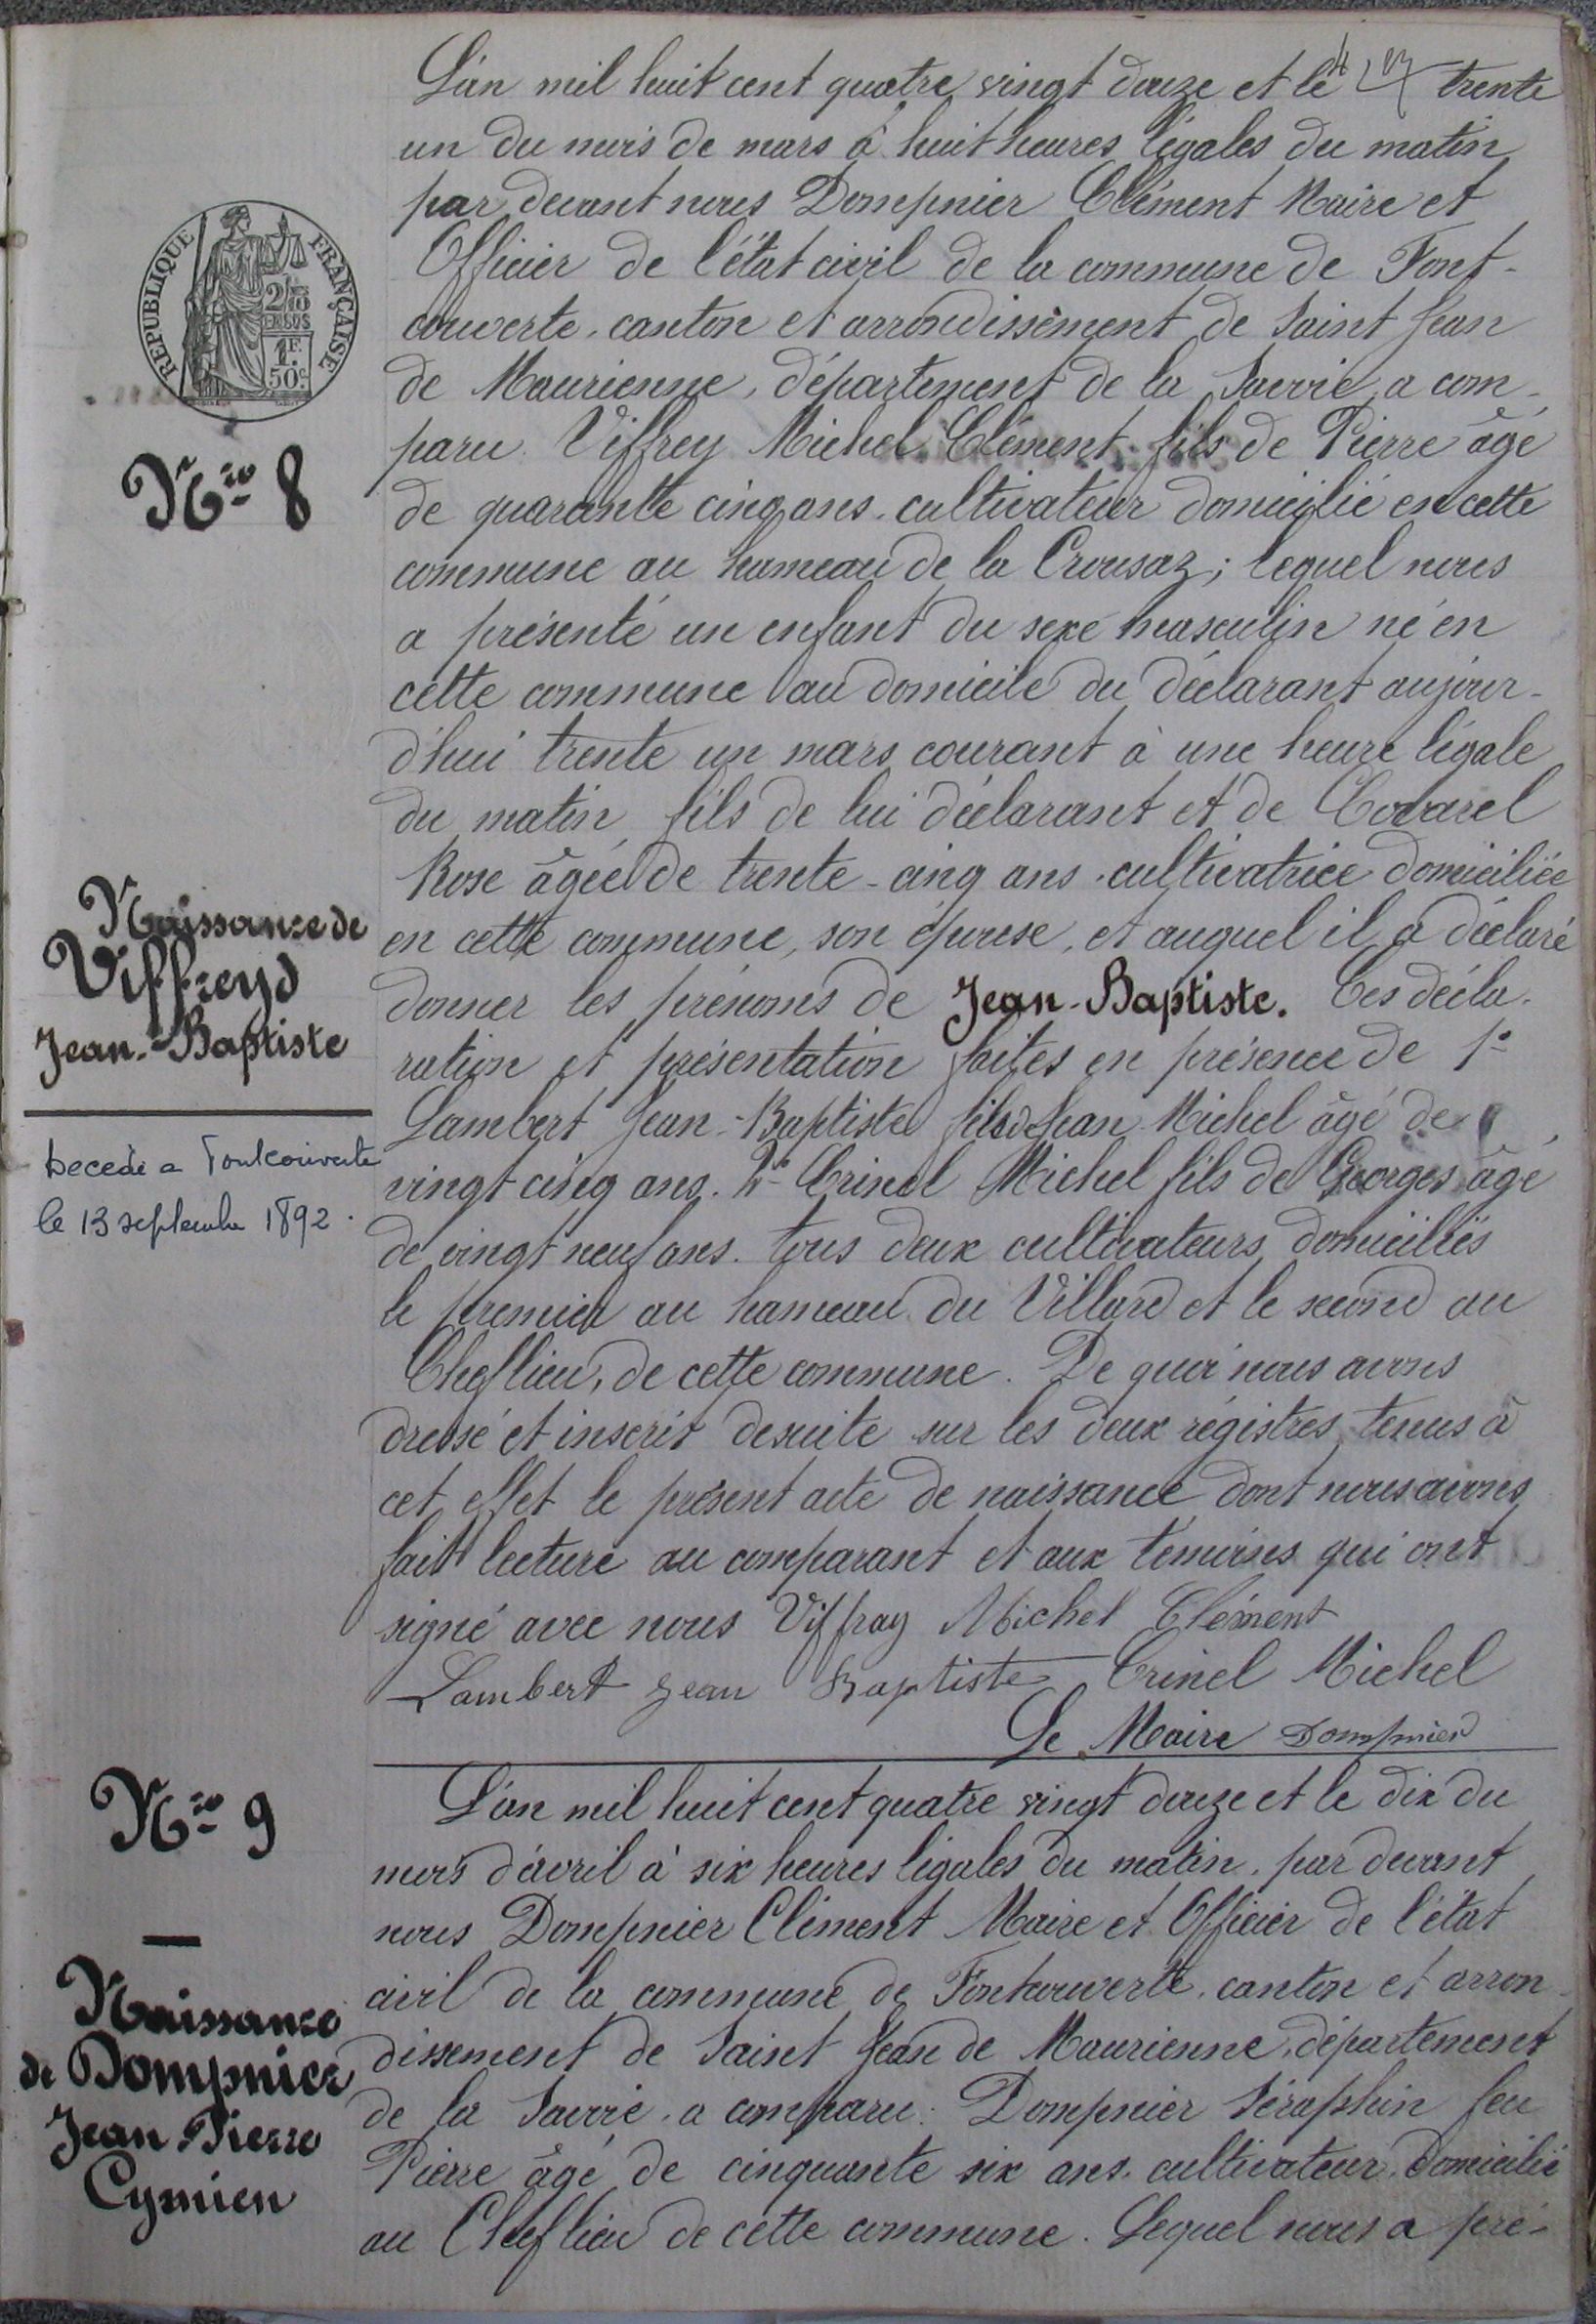 L'an mil huit cent quatre vingt douze et le trente
un du mois de mars à huit heures légales du matin
par devant nous Dompnier Clément Maire et
Officier de l'état civil de la commune de Font-
couverte, canton et arrondissement de Saint Jean
de Maurienne, département de la Savoie, a com-
paru Viffrey Michel Clément fils de Pierre âgé
de quarante cinq ans, cultivateur domicilié en cette
commune au hameau de la Crousaz; lequel nous
a présenté un enfant du sexe masculin né en
cette commune au domicile du déclarant aujour-
d'hui trente un mars courant à une heure légale
du matin fils de lui déclarant et de Covarel
Rose âgée de trente-cinq ans, cultivatrice domiciliée
en cette commune, son épouse, et auquel il a déclaré
donner les prénoms de Jean-Baptiste. Ces décla-
ration et présentation faites en présence de 1°
Lambert Jean-Baptiste fils de Jean Michel âgé de
vingt cinq ans. 2° Crinel Michel fils de Georges âgé
de vingt neuf ans. tous deux cultivateurs domiciliés
le premier au hameau du Villard et le second au
Cheflieu, de cette commune. De quoi nous avons
dressé et inscrit desuite sur les deux régistres tenus à
cet effet le présent acte de naissance dont nous avons
fait lecture au comparant et aux témoins qui ont
signé avec nous Viffray Michel Clément
Lambert Jean Baptiste Crinel Michel
Le Maire Dompnier
L'an mil huit cent quatre vingt douze et le dix du
mois d'avril à six heures légales du matin, par devant
nous Dompnier Clément Maire et Officier de l'état
civil de la commune de Fontcouverte, canton et arron-
dissement de Saint Jean de Maurienne, département
de la Savoie, a comparu: Dompnier Séraphin feu
Pierre âgé de cinquante six ans, cultivateur, domicilié
au Cheflieu de cette commune. Lequel nous a pré-
REPUBLIQUE FRANÇAISE
2/10
EN SUS
1F.
50c.
Nro 8
Naissance de
Viffreyd
Jean-Baptiste
Decede a Fontcouverte
le 13 septembre 1892.
Nro 9
Naissance
de Dompnier
Jean Pierre
Cymien